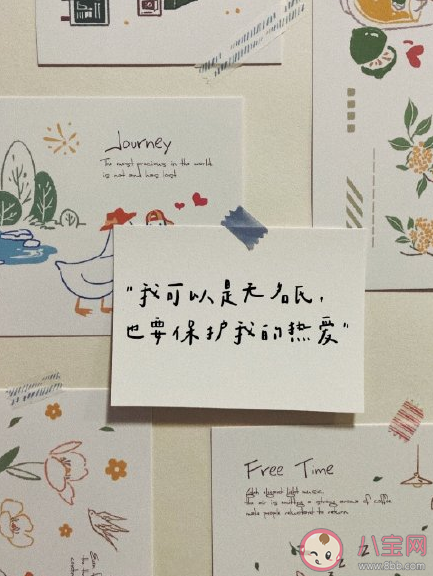 Journey
The most precious in the world
is not and has lost
"我可以是无名氏,
也要保护我的热爱"
Free Time
the air is emitting a strong aroma of coffee
make people reluctant to return
Z Z
八宝网
www.8bb.com